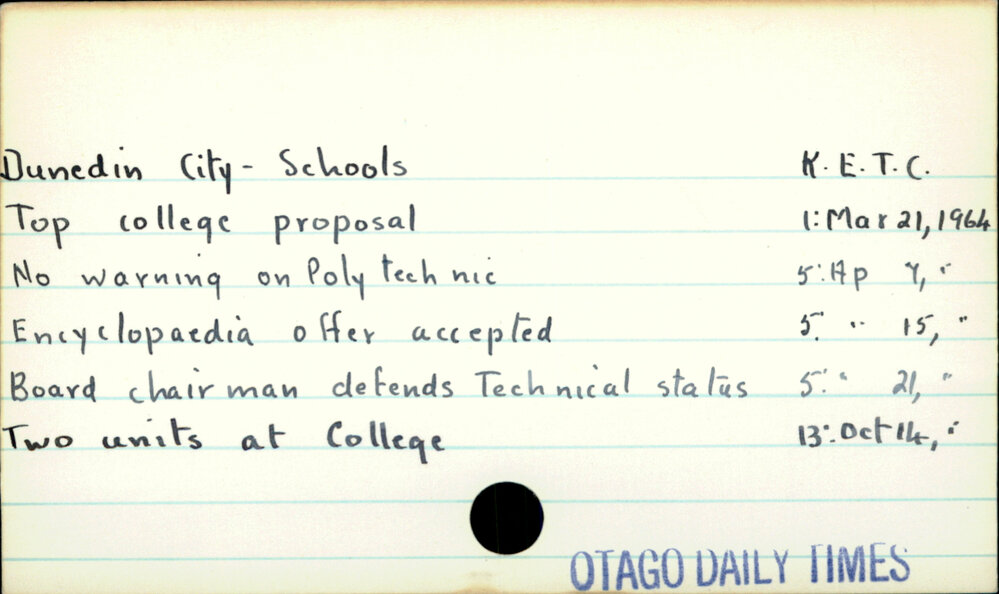 Dunedin City - Schools K. E. T. C.
Top college proposal 1: Mar 21, 1964
No warning on Polytechnic 5: Ap 7, "
Encyclopaedia offer accepted 5: " 15, "
Board chairman defends Technical status 5: " 21, "
Two units at College 13: Oct 14, "
OTAGO DAILY TIMES